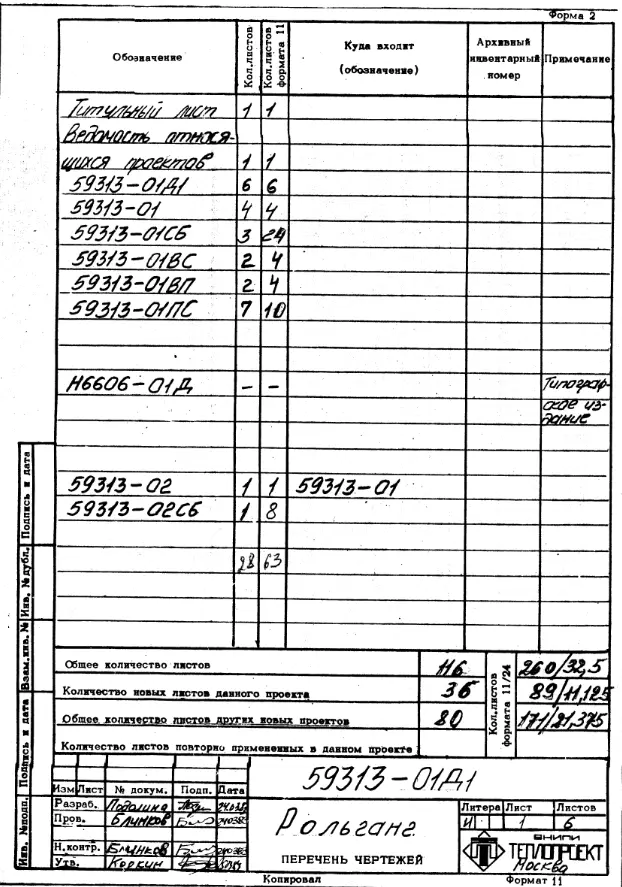 Форма 2
Обозначение Кол.листов Кол.листов формата 11 Куда входит (обозначение) Архивный инвентарный номер Примечание
Титульный лист 1 1
Ведомость относя-
щихся проектов 1 1
59313-01Д1 6 6
59313-01 4 4
59313-01СБ 3 24
59313-01ВС 2 4
59313-01ВП 2 4
59313-01ПС 7 10
Н6606-01Д — — Типограф-
ское из-
дание
59313-02 1 1 59313-01
59313-02СБ 1 8
28 63
Подпись и дата
Инв. № дубл.
Взам.инв. №
Подпись и дата
Инв. №подл.
Общее количество листов 116 Кол.листов формата 11/24 260/32,5
Количество новых листов данного проекта 36 89/11,125
Общее количество листов других новых проектов 80 171/21,375
Количество листов повторно примененных в данном проекте
59313-01Д1
Изм Лист № докум. Подп. Дата
Разраб.
Пров. Блинков
Н.контр. Блинков
Утв. Коркин
Рольганг
ПЕРЕЧЕНЬ ЧЕРТЕЖЕЙ
Литера Лист Листов
И 1 6
ВНИПИ
ТЕПЛОПРОЕКТ
Москва
Копировал Формат 11